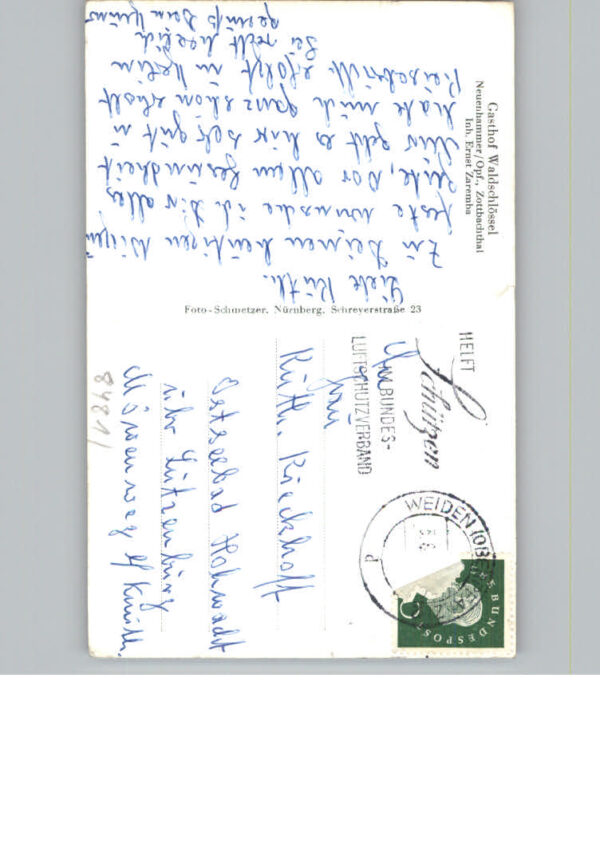 Gasthof Waldschlössel
Neuenhammer/Opf., Zottbachthal
Inh. Ernst Zaremba
Liebe Ruth.
Zu Deinem heutigen
feste wünsche ich Dir alles
Gute, vor allem Gesundheit
Mir geht es hier sehr gut u
habe mich ganz schön erholt
Reisebericht erfolgt in
Sei recht herzlich
gegrüßt Dein
Foto-Schmetzer, Nürnberg, Schreyerstraße 23
HELFT
Schützen
IM BUNDES-
LUFTSCHUTZVERBAND
WEIDEN (OBERPF)
P
DEUTSCHE BUNDESPOST
Frau
Ruth. Rieckhoff
Ostseebad Hohwacht
über Lützenburg
Möwenweg
8481/